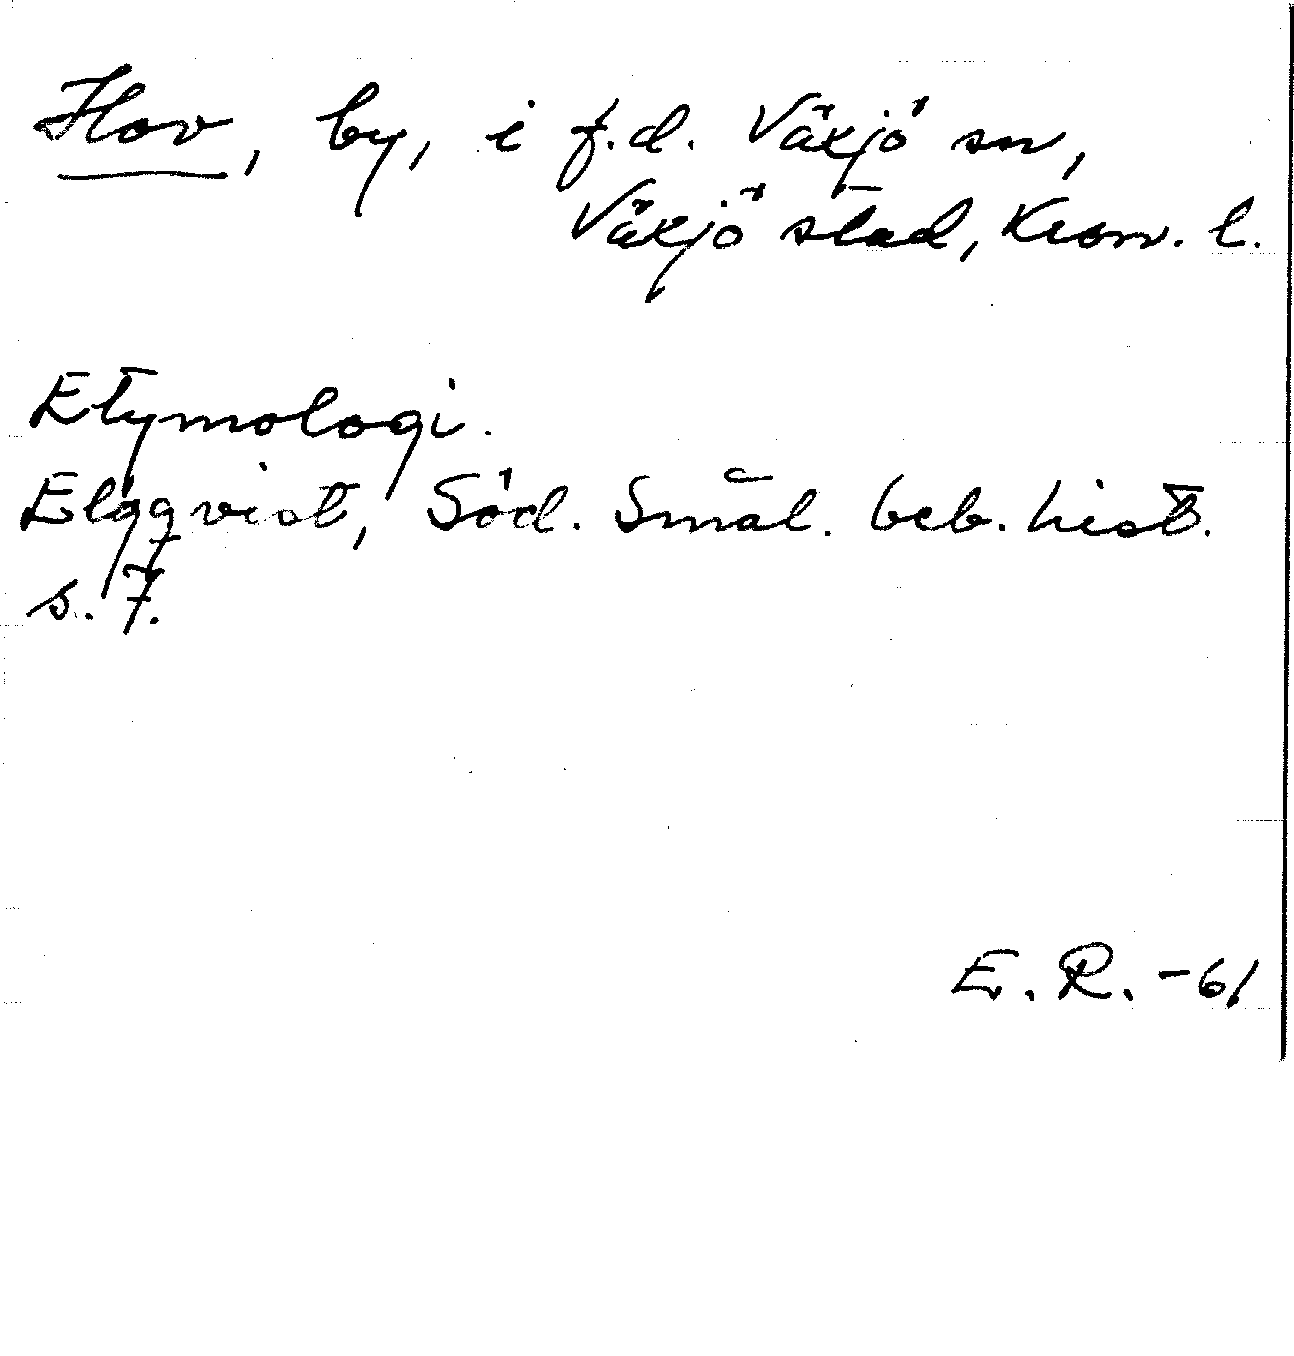 Hov, by, i f.d. Växjö sn,
Växjö stad, Kron. l.
Etymologi.
Elgqvist, Söd. Smål. beb. hist.
s. 7.
E. R. -61